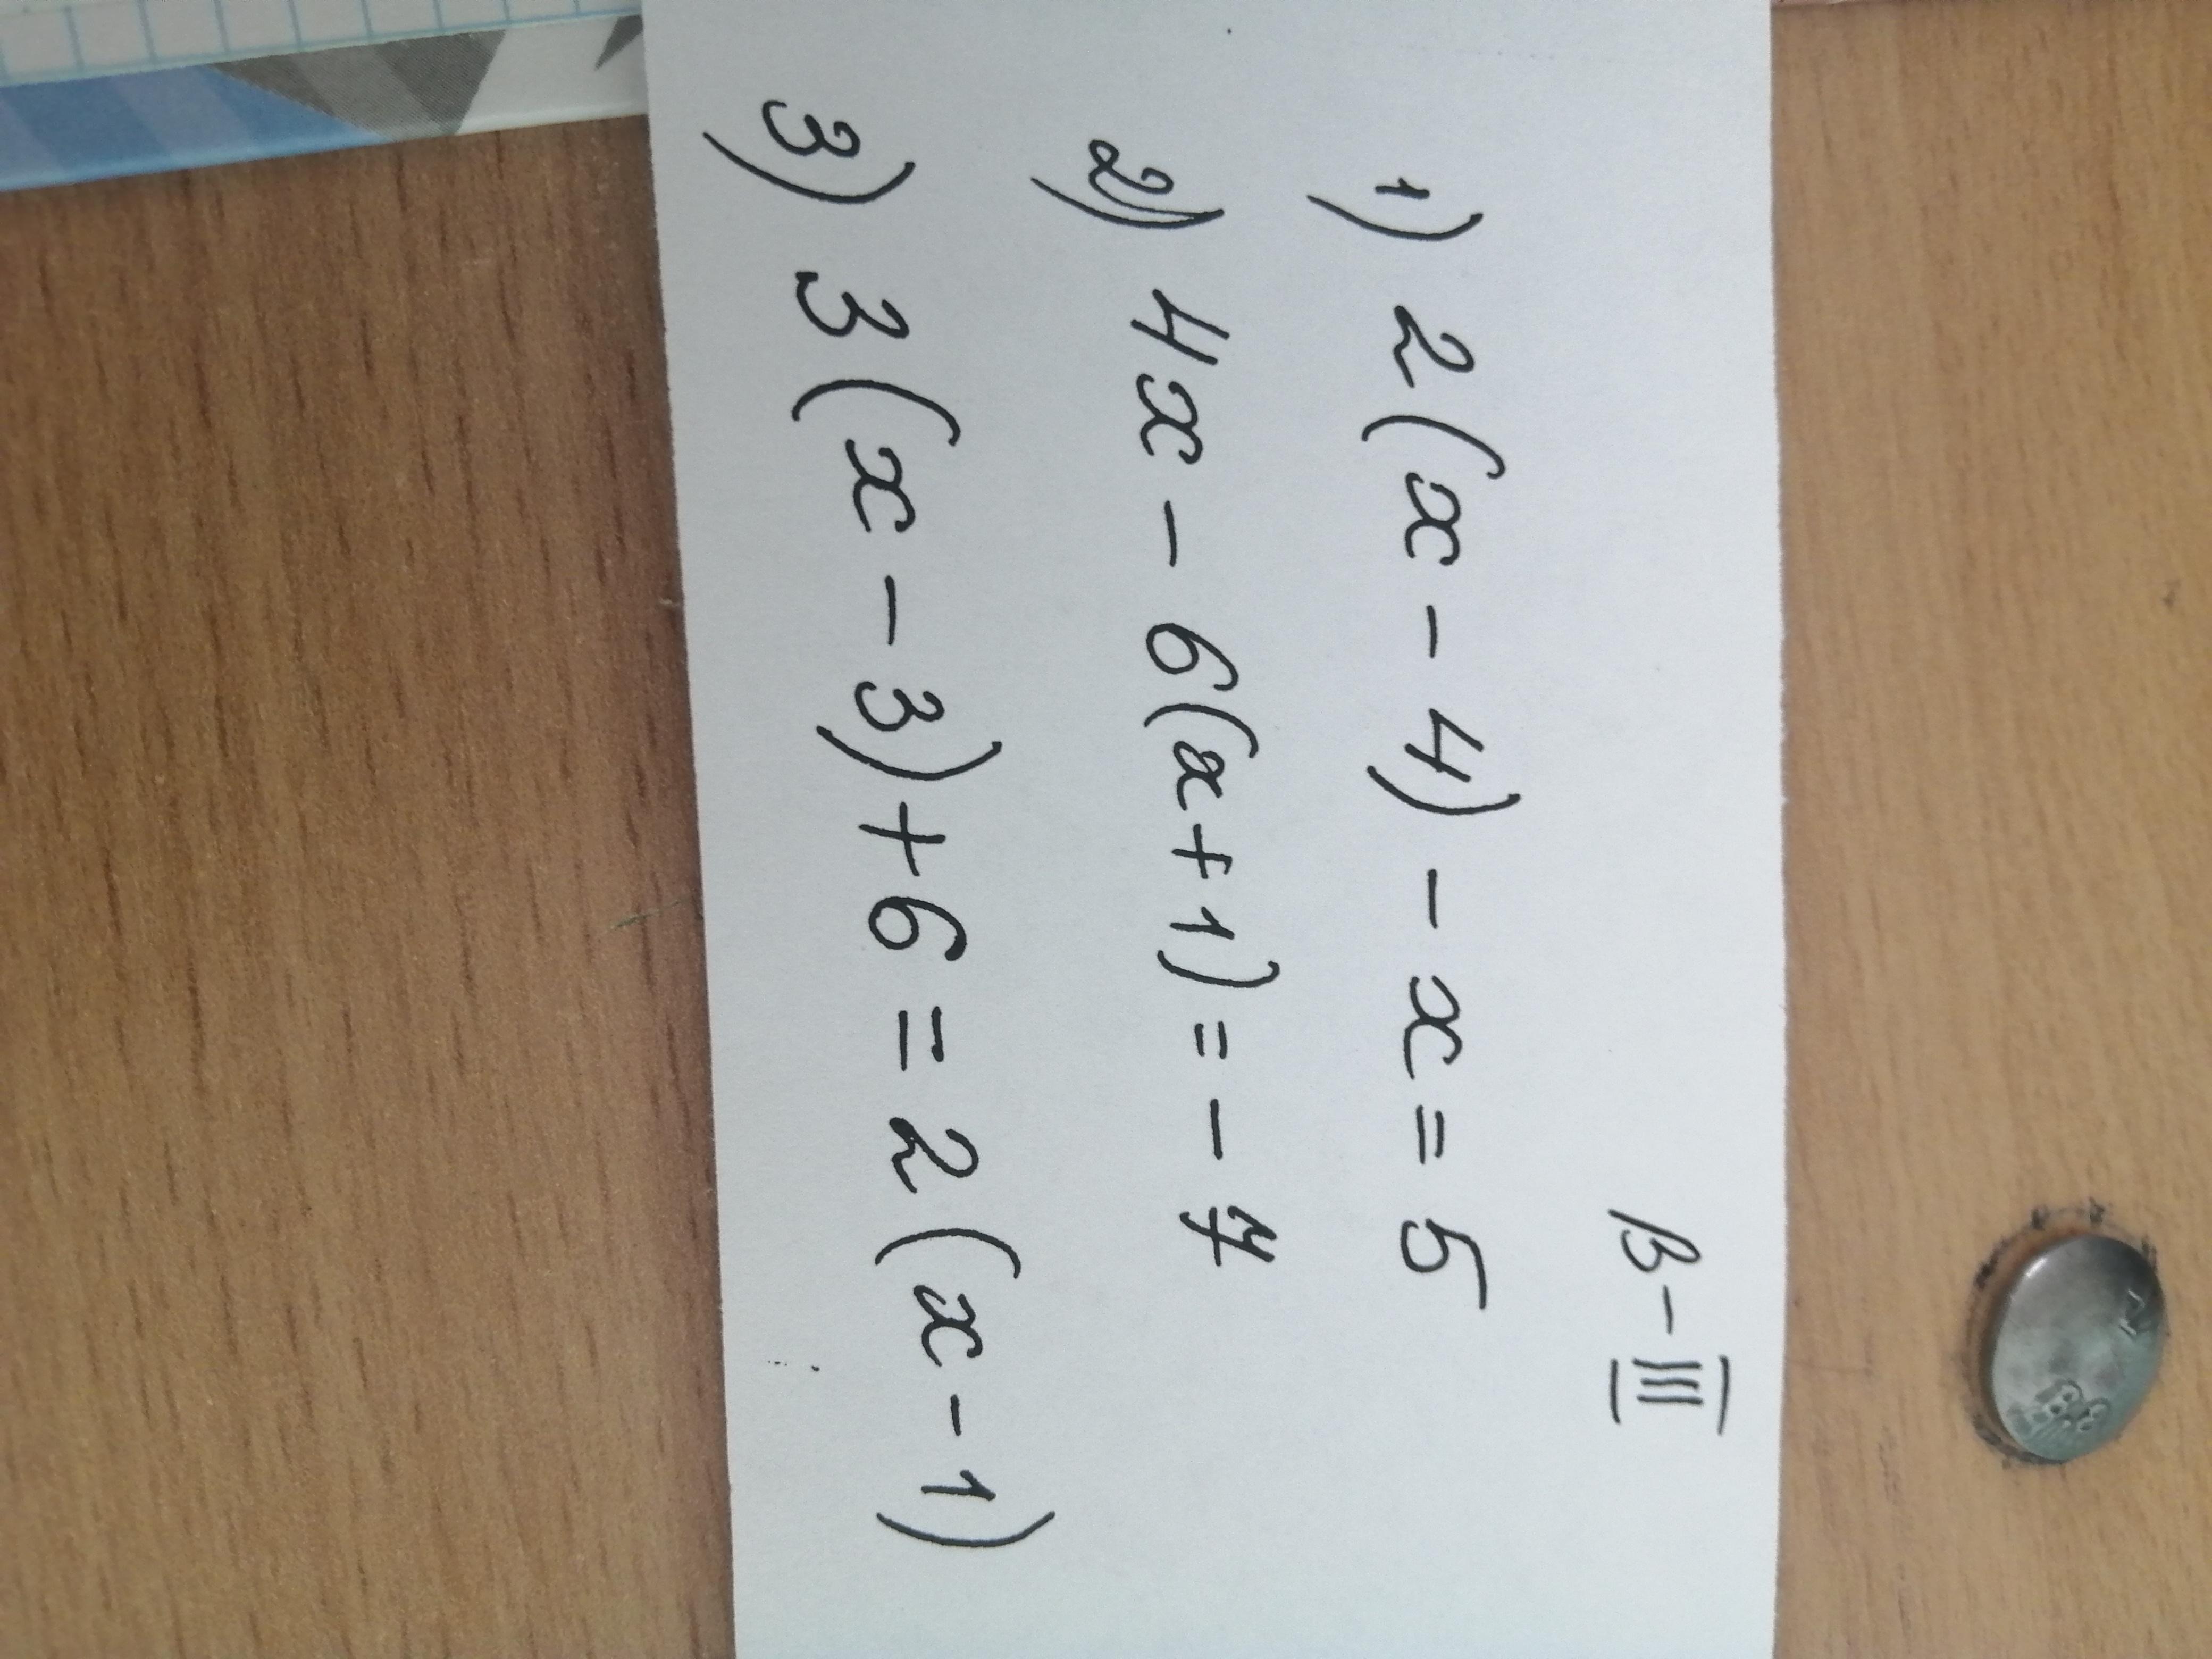 В-III
1) 2(x - 4) - x = 5
2) 4x - 6(x+1) = - 7
3) 3(x - 3)+6 = 2(x-1)